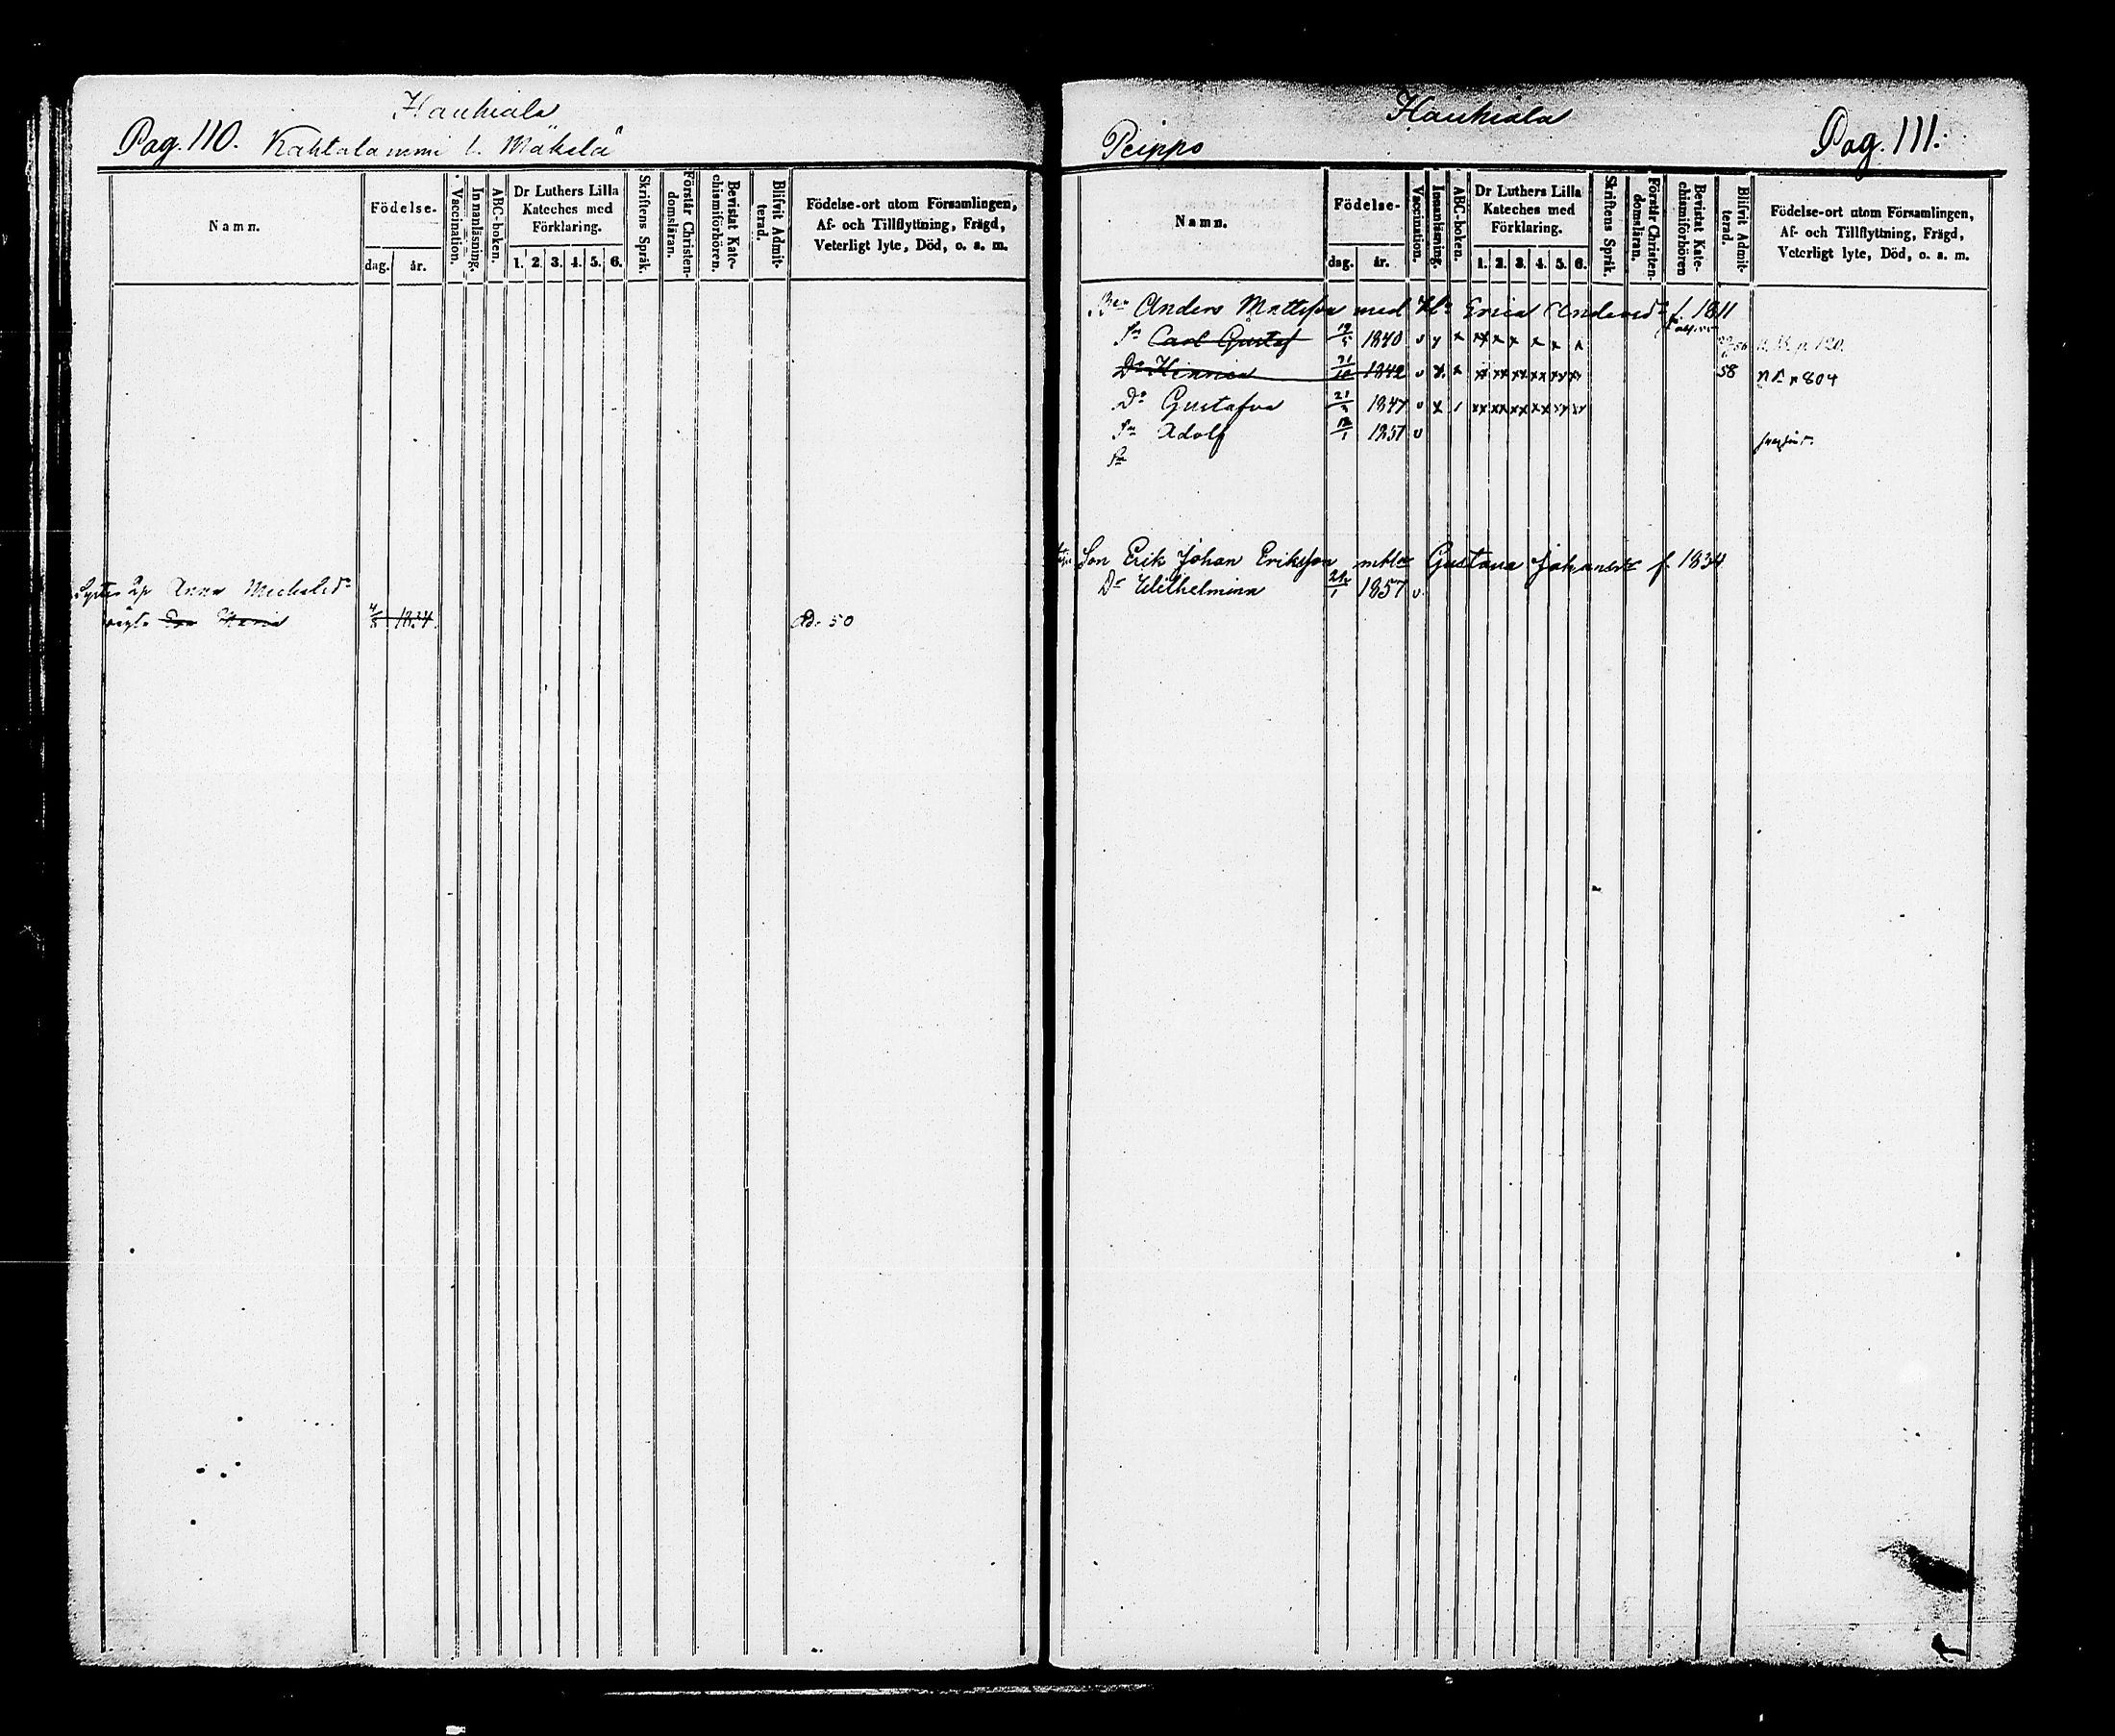 Hauhiala
Pag. 110. Kahtalammi l. Mäkelä
Namn.
Födelse-
dag. år.
Vaccination.
Innanläsning.
ABC-boken.
Dr Luthers Lilla
Kateches med
Förklaring.
1. 2. 3. 4. 5. 6.
Skriftens Språk.
Förstår Christen-
domsläran.
Bevistat Kate-
chismiförhören.
Blifvit Admit-
terad.
Födelse-ort utom Församlingen,
Af- och Tillflyttning, Frägd,
Veterligt lyte, Död, o. s. m.
Anna Michelsdr
Maria 1834 Ad. 50
Hauhiala
Peippo
Pag. 111.
Namn.
Födelse-
dag. år.
Vaccination.
Innanläsning.
ABC-boken.
Dr Luthers Lilla
Kateches med
Förklaring.
1. 2. 3. 4. 5. 6.
Skriftens Språk.
Förstår Christen-
domsläran.
Bevistat Kate-
chismiförhören
Blifvit Admit-
terad.
Födelse-ort utom Församlingen,
Af- och Tillflyttning, Frägd,
Veterligt lyte, Död, o. s. m.
Anders Mattsson med H. Erica Andersdr f. 1811
Sn Carl Gustaf 19/5 1840 v x x xx x x x x x
Dr Henrica 31/10 1842 v x x xx xx xx xx xx xx 58 p 804
Dr Gustafva 21/3 1847 v x xx xx xx xx xx xx
Sn Adolf 12/1 1851 v
Sn
Son Erik Johan Eriksson m hu Gustava Johansdr f. 1834
Dr Wilhelmina 1857 v